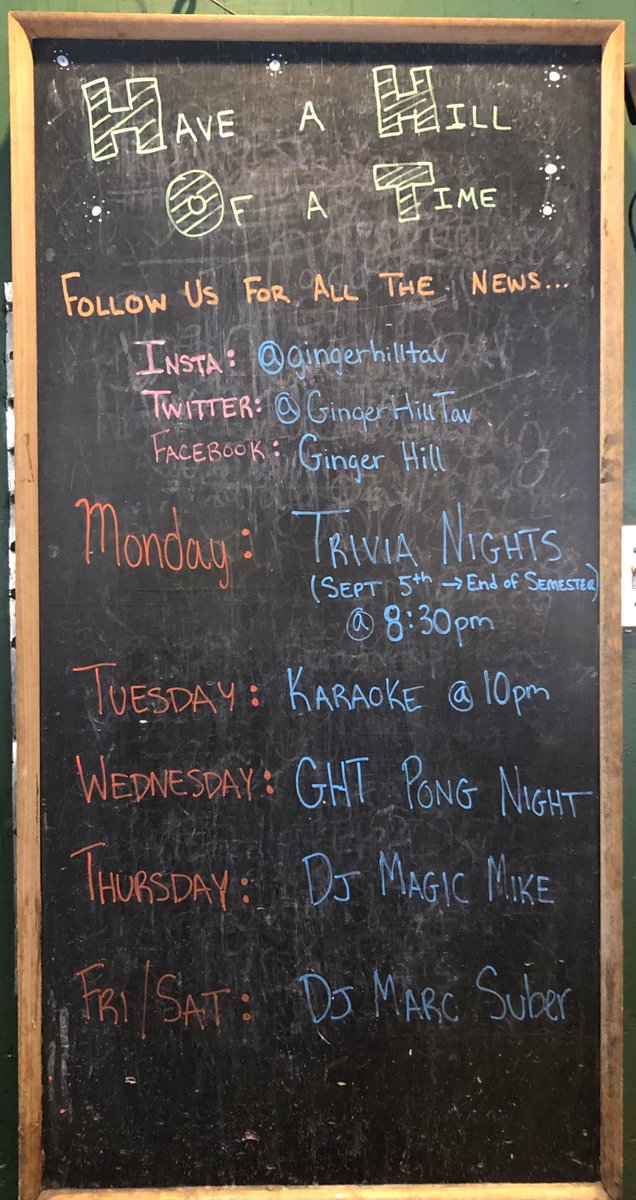 HAVE A HILL
OF A TIME
FOLLOW US FOR ALL THE NEWS...
INSTA: @gingerhilltav
TWITTER: @GingerHillTav
FACEBOOK: Ginger Hill
Monday: TRIVIA NIGHTS
(SEPT 5th → End of SEMESTER)
@ 8:30pm
TUESDAY: KARAOKE @ 10pm
WEDNESDAY: GHT PONG NIGHT
THURSDAY: DJ MAGIC MIKE
FRI/SAT: DJ MARC Suber